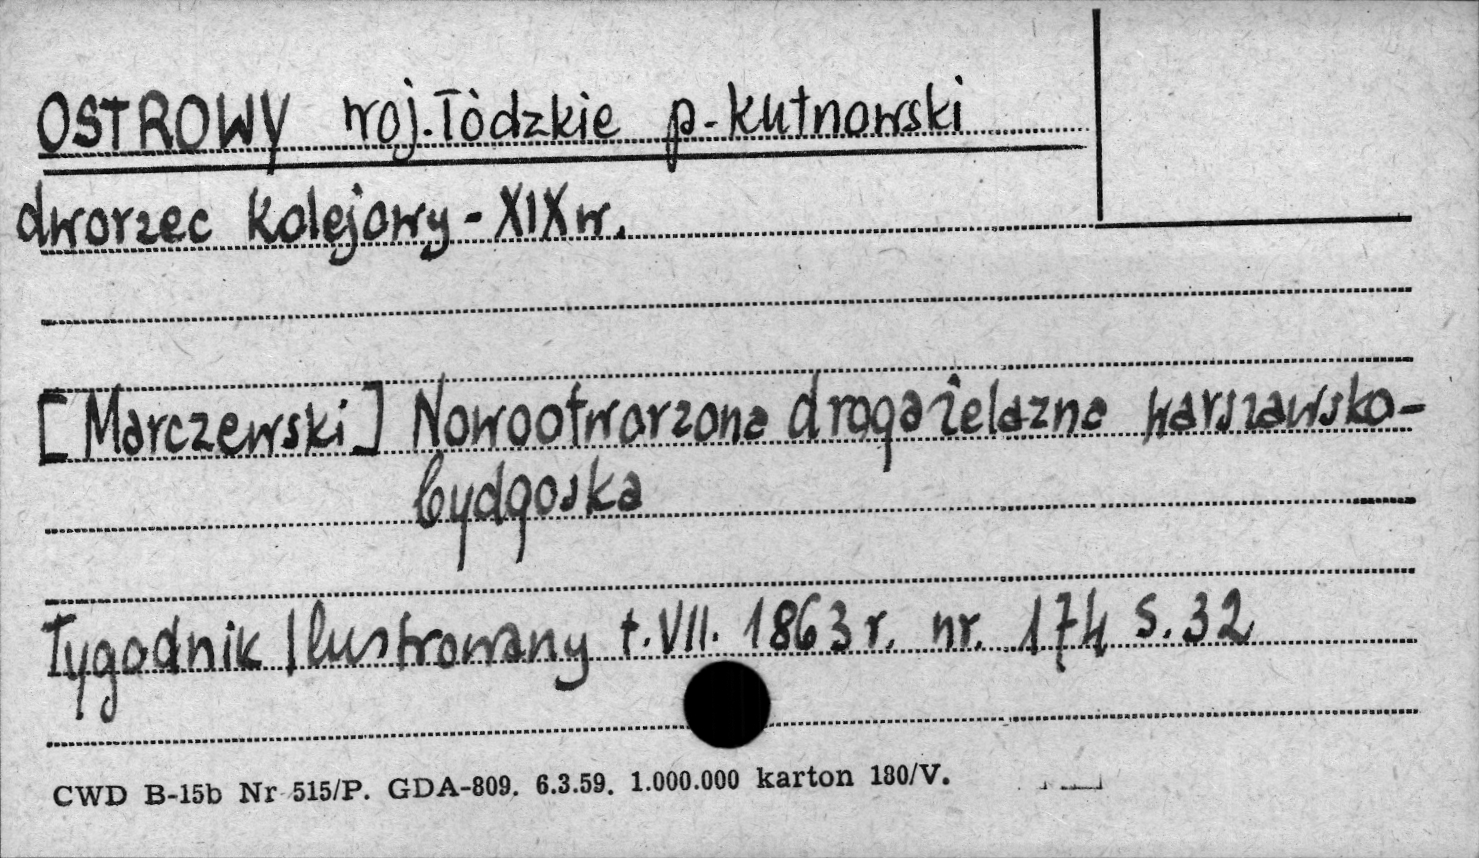 OSTROWY woj. Łódzkie p. kutnowski
dworzec kolejowy - XIX w.
[Marczewski] Nowootworzona droga żelazna warszawsko-
bydgoska
Tygodnik Ilustrowany t. VII. 1863 r. nr. 174 s. 32
CWD B-15b Nr 515/P. GDA-809. 6.3.59. 1.000.000 karton 180/V.